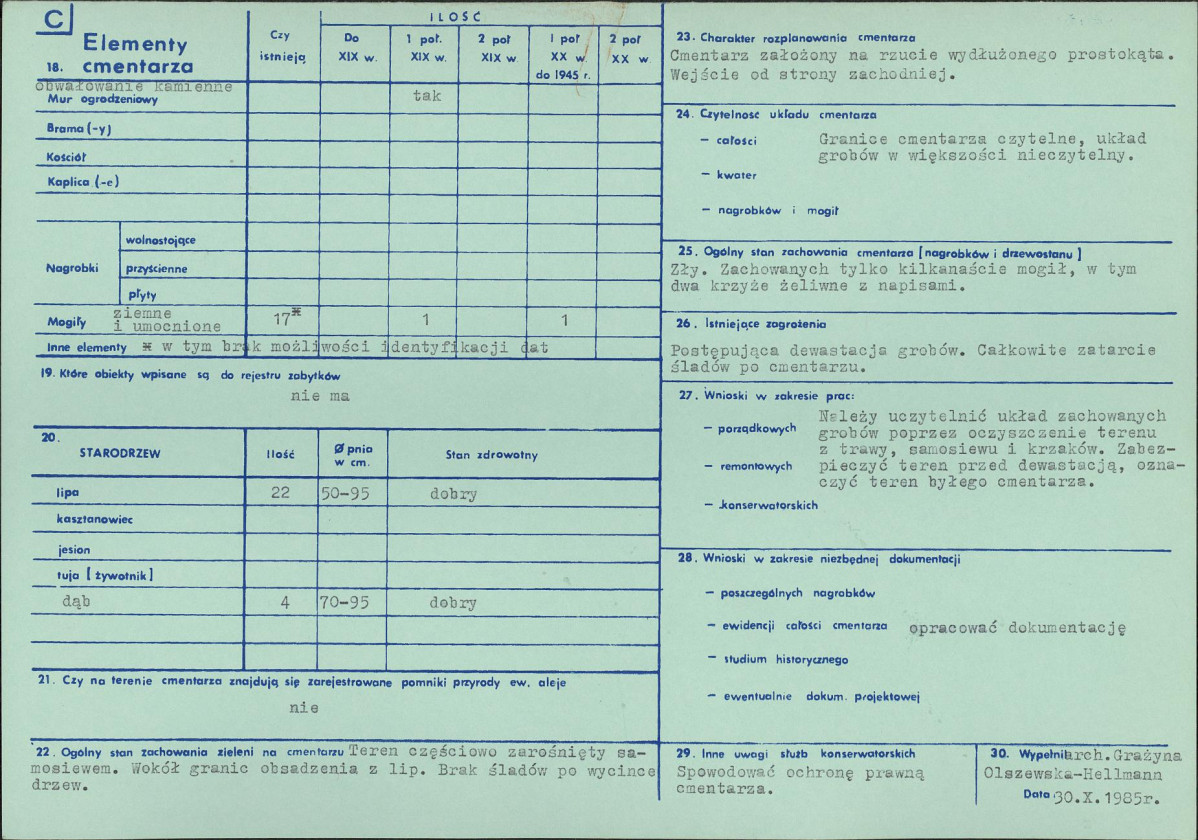 C
Elementy
18. cmentarza
Czy
istnieją
ILOŚĆ
Do
XIX w.
1 poł.
XIX w.
2 poł
XIX w.
I poł
XX w
do 1945 r.
2 poł
XX w
obwałowanie kamienne
Mur ogrodzeniowy
tak
Brama (-y)
Kościół
Kaplica (-e)
Nagrobki
wolnostojące
przyścienne
płyty
Mogiły ziemne
i umocnione
17* 1 1
Inne elementy * w tym brak możliwości identyfikacji dat
19. Które obiekty wpisane są do rejestru zabytków
nie ma
20.
STARODRZEW
Ilość
Ø pnia
w cm.
Stan zdrowotny
lipa 22 50-95 dobry
kasztanowiec
jesion
tuja [żywotnik]
dąb 4 70-95 dobry
21. Czy na terenie cmentarza znajdują się zarejestrowane pomniki przyrody ew. aleje
nie
22. Ogólny stan zachowania zieleni na cmentarzu Teren częściowo zarośnięty sa-
mosiewem. Wokół granic obsadzenia z lip. Brak śladów po wycince
drzew.
23. Charakter rozplanowania cmentarza
Cmentarz założony na rzucie wydłużonego prostokąta.
Wejście od strony zachodniej.
24. Czytelność układu cmentarza
– całości Granice cmentarza czytelne, układ
grobów w większości nieczytelny.
– kwater
– nagrobków i mogił
25. Ogólny stan zachowania cmentarza [nagrobków i drzewostanu]
Zły. Zachowanych tylko kilkanaście mogił, w tym
dwa krzyże żeliwne z napisami.
26. Istniejące zagrożenia
Postępująca dewastacja grobów. Całkowite zatarcie
śladów po cmentarzu.
27. Wnioski w zakresie prac:
– porządkowych
– remontowych
– konserwatorskich
Należy uczytelnić układ zachowanych
grobów poprzez oczyszczenie terenu
z trawy, samosiewu i krzaków. Zabez-
pieczyć teren przed dewastacją, ozna-
czyć teren byłego cmentarza.
28. Wnioski w zakresie niezbędnej dokumentacji
– poszczególnych nagrobków
– ewidencji całości cmentarza opracować dokumentację
– studium historycznego
– ewentualnie dokum. projektowej
29. Inne uwagi służb konserwatorskich
Spowodować ochronę prawną
cmentarza.
30. Wypełnił arch. Grażyna
Olszewska-Hellmann
Data 30.X.1985r.